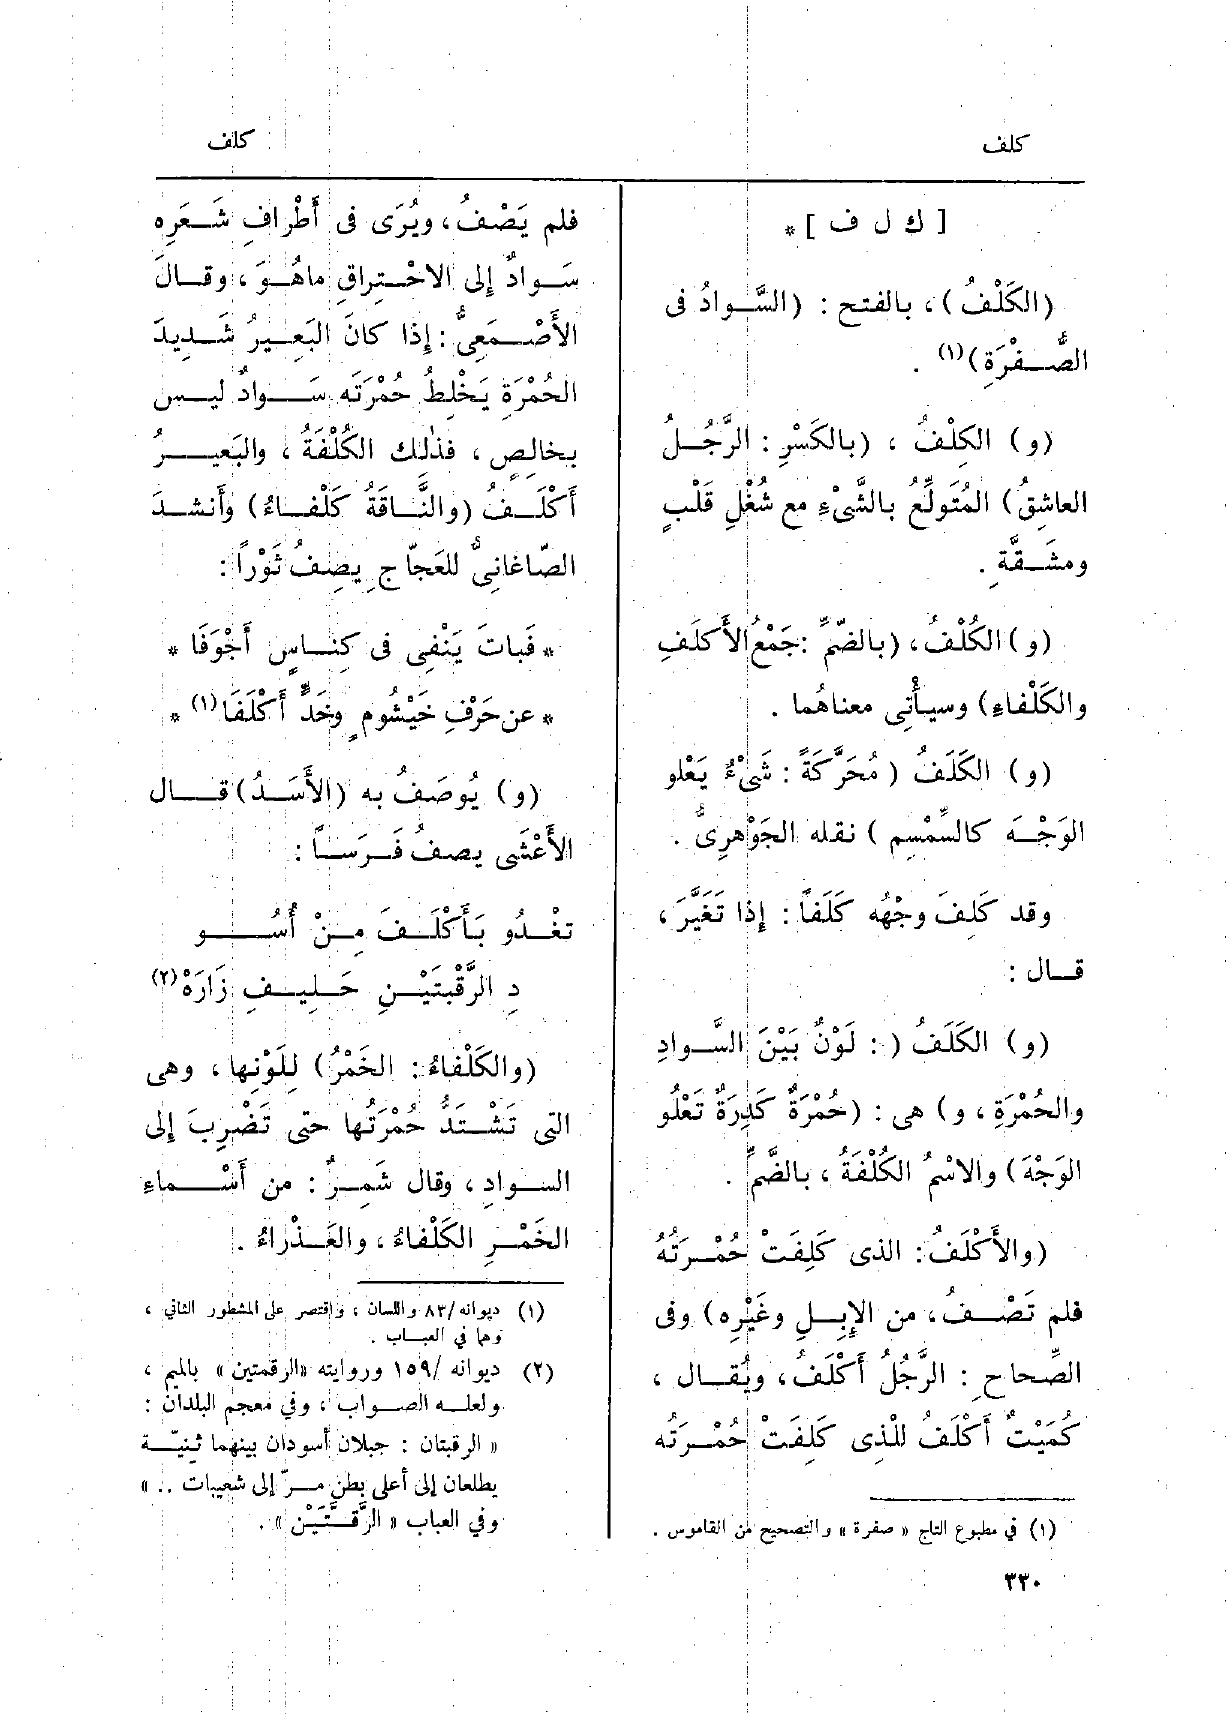 كلف
كلف
[ ك ل ف ] *
(الكَلْفُ)، بالفتح : (السَّوادُ فى
الصُّفْرَةِ)(١) .
(و) الكِلْفُ ، (بالكَسْرِ : الرَّجُلُ
العاشِقُ) المُتَولِّعُ بالشَّىْءِ مع شُغْلِ قَلْبٍ
ومشَقَّةٍ .
(و) الكُلْفُ، (بالضّمِّ :جَمْعُ الأَكلَفِ
والكَلْفاءِ) وسيأْتى معناهُما .
(و) الكَلَفُ ( مُحَرَّكَةً : شَىْءٌ يَعْلو
الوَجْهَ كالسِّمْسِمِ ) نقله الجَوْهرِىُّ .
وقد كَلِفَ وجْهُه كَلَفاً : إذا تَغَيَّرَ ،
قال :
(و) الكَلَفُ ( : لَوْنٌ بَيْنَ السَّوادِ
والحُمْرَةِ ، و) هى : (حُمْرَةٌ كَدِرَةٌ تَعْلُو
الوَجْهَ) والاسْمُ الكُلْفَةُ ، بالضَّمِّ .
(والأَكْلَفُ: الذى كَلِفَتْ حُمْرَتُهُ
فلم تَصْفُ، من الإِبِلِ وغَيْرِه) وفى
الصِّحاحِ : الرَّجُلُ أَكْلَفُ، ويُقال ،
كُمَيْتٌ أَكْلَفُ للَّذِى كَلِفَتْ حُمْرَتُه
(١) في مطبوع التاج « صفرة » والتصحيح من القاموس .
٣٣٠
فلم يَصْفُ، ويُرَى فى أَطْرافِ شَعَرِه
سَوادٌ إلى الاحْتِراقِ ماهُوَ ، وقالَ
الأَصْمَعِىُّ : إذا كانَ البَعِيرُ شَدِيدَ
الحُمْرَةِ يَخْلِطُ حُمْرَتَه سَوادٌ ليس
بخالِصٍ ، فذٰلك الكُلْفَةُ ، والبَعيرُ
أَكْلَفُ (والنَّاقَةُ كَلْفاءُ) وأَنشدَ
الصّاغانىُّ للعَجّاجِ يصِفُ ثَوْراً :
* فَباتَ يَنْفِى فى كِناسٍ أَجْوَفَا *
* عن حَرْفِ خَيْشُومٍ وخَدٍّ أَكْلَفَا(١) *
(و) يُوصَفُ به (الأَسَدُ) قال
الأَعْشَى يصفُ فَرَساً :
تغْدُو بَأَكْلَفَ مِنْ أُسُو
دِ الرَّقْبتَيْنِ حَلِيفِ زَارَهْ(٢)
(والكَلْفاءُ: الخَمْرُ) لِلَوْنِها ، وهى
التى تَشْتدُّ حُمْرَتُها حتى تَضْرِبَ إلى
السوادِ ، وقال شَمِرٌ : من أَسْماءِ
الخَمْرِ الكَلْفاءُ، والعَذْراءُ .
(١) ديوانه/٨٣ واللسان ، واقتصر على المشطور الثاني ،
وهما في العباب .
(٢) ديوانه /١٥٩ وروايته «الرقمتين » بالميم ،
ولعله الصواب ، وفي معجم البلدان :
« الرقبتان : جبلان أسودان بينهما ثنيّة
يطلعان إلى أعلى بطن مرّ إلى شعيبات .. »
وفي العباب « الرَّقَّتَيْن » .